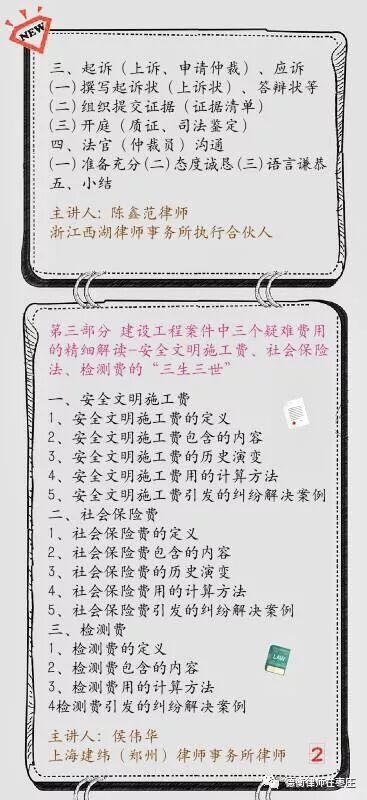 NEW
三、起诉（上诉、申请仲裁）、应诉
(一)撰写起诉状（上诉状）、答辩状等
(二)组织提交证据（证据清单）
(三)开庭（质证、司法鉴定）
四、法官（仲裁员）沟通
(一)准备充分(二)态度诚恳(三)语言谦恭
五、小结
主讲人：陈鑫范律师
浙江西湖律师事务所执行合伙人
第三部分 建设工程案件中三个疑难费用
的精细解读-安全文明施工费、社会保险
法、检测费的“三生三世”
一、安全文明施工费
1、安全文明施工费的定义
2、安全文明施工费包含的内容
3、安全文明施工费的历史演变
4、安全文明施工费用的计算方法
5、安全文明施工费引发的纠纷解决案例
二、社会保险费
1、社会保险费的定义
2、社会保险费包含的内容
3、社会保险费的历史演变
4、社会保险费用的计算方法
5、社会保险费引发的纠纷解决案例
三、检测费
1、检测费的定义
2、检测费包含的内容
3、检测费用的计算方法
4检测费引发的纠纷解决案例
LAW
主讲人：侯伟华
上海建纬（郑州）律师事务所律师
2
德衡律师在枣庄